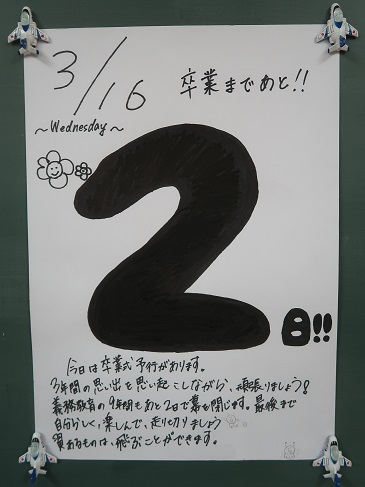 3/16
卒業まであと!!
～Wednesday～
2
日!!
今日は卒業式予行があります。
3年間の思い出を思い起こしながら、頑張りましょう!
義務教育の9年間もあと2日で幕を閉じます。最後まで
自分らしく、楽しんで、走り切りましょう
翼あるものは、飛ぶことができます。